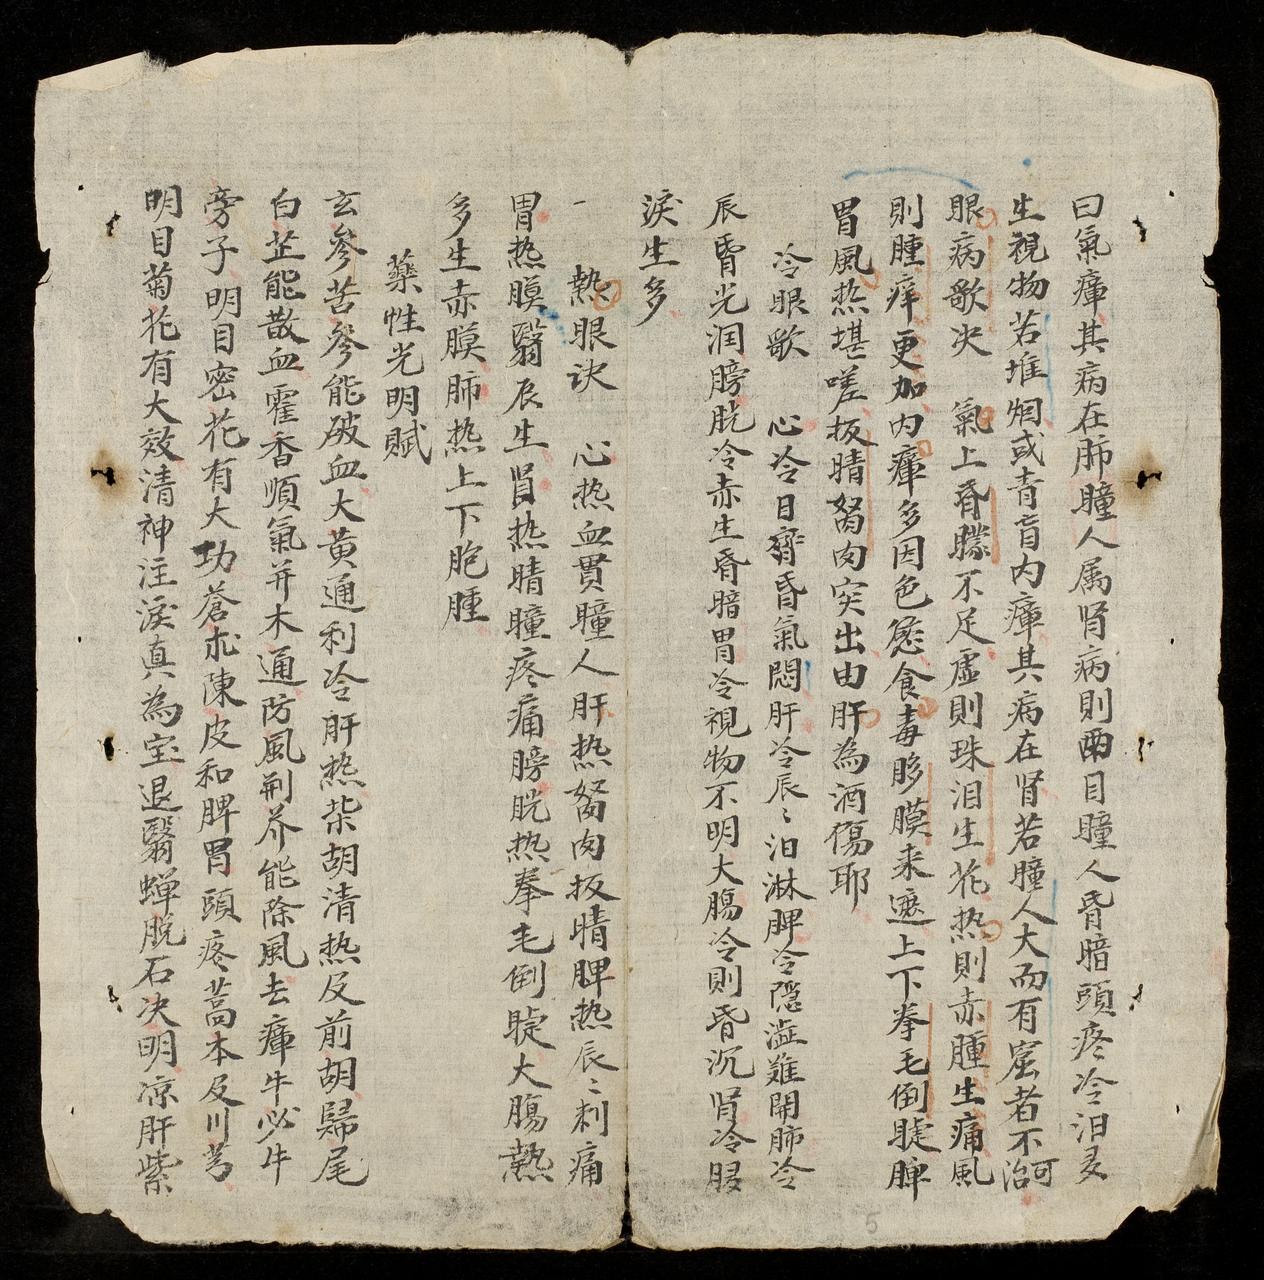 曰氣瘴其病在肺瞳人属肾病則兩目瞳人昏暗頭疼冷泪
生視物若堆烟或青盲内瘴其病在肾若瞳人大而有窟者不可治
眼病歌决　氣上昏矇不足虚則珠泪生花热則赤腫生痛風
則腫痒更加内瘴多因色慾食毒胗膜来遮上下拳毛倒睫脾
胃風热堪嗟扳睛胬肉突出由肝為酒傷耶
冷眼歌　心冷日 昏氣悶肝冷辰〻泪淋脾冷隱澁難開肺冷
辰昏光润膀胱冷赤生昏暗胃冷視物不明大腸冷則昏沉肾冷
淚生多
一　熱眼诀　心热血貫瞳人肝热胬肉扳睛脾热辰〻刺痛
胃热膜翳辰生肾热睛瞳疼痛膀胱热拳毛倒睫大腸熱
多生赤膜肺热上下胞腫
藥性光明賦
玄參苦參能破血大黄通利冷肝热柴胡清热反前胡歸尾
白芷能散血霍香順氣并木通防風荆芥能除風去瘴牛必牛
旁子明目密花有大功蒼朮陳皮和脾胃頭疼蒿本及川芎
明目菊花有大效清神注淚真為宝退翳蝉脱石决明凉肝紫
5